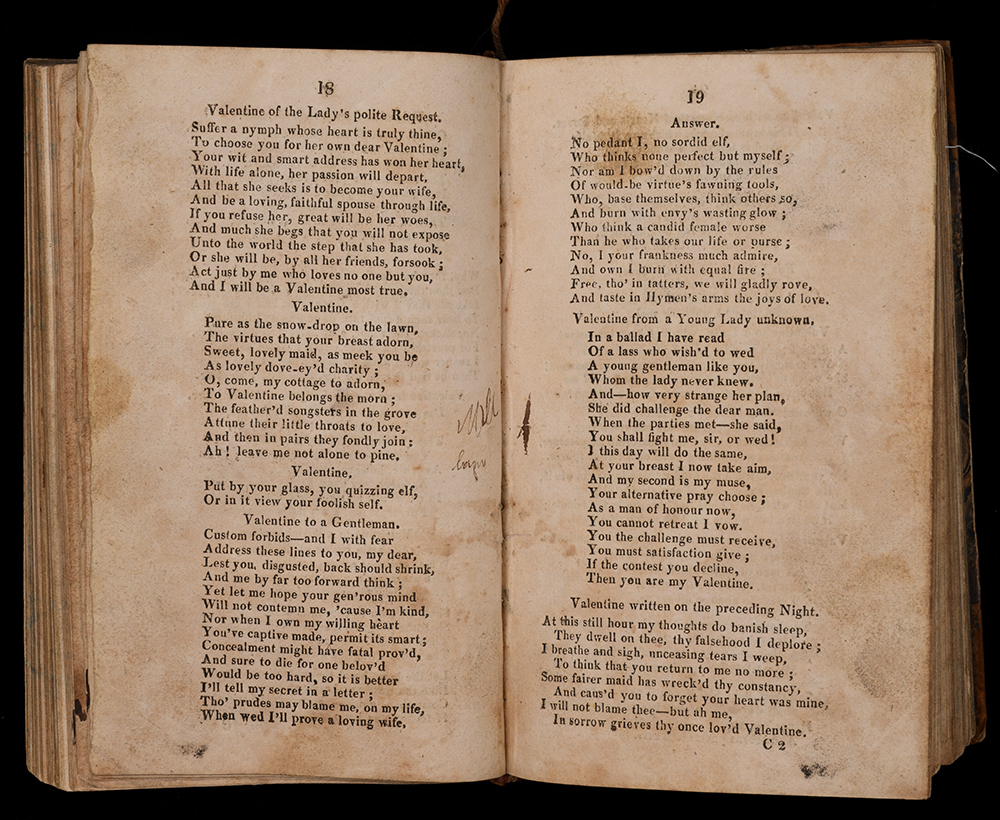 18
Valentine of the Lady's polite Request.
Suffer a nymph whose heart is truly thine,
To choose you for her own dear Valentine ;
Your wit and smart address has won her heart,
With life alone, her passion will depart,
All that she seeks is to become your wife,
And be a loving, faithful spouse through life,
If you refuse her, great will be her woes,
And much she begs that you will not expose
Unto the world the step that she has took,
Or she will be, by all her friends, forsook ;
Act just by me who loves no one but you,
And I will be a Valentine most true.
Valentine.
Pure as the snow-drop on the lawn,
The virtues that your breast adorn,
Sweet, lovely maid, as meek you be
As lovely dove-ey'd charity ;
O, come, my cottage to adorn,
To Valentine belongs the morn ;
The feather'd songsters in the grove
Attune their little throats to love,
And then in pairs they fondly join ;
Ah ! leave me not alone to pine.
Valentine.
Put by your glass, you quizzing elf,
Or in it view your foolish self.
Valentine to a Gentleman.
Custom forbids—and I with fear
Address these lines to you, my dear,
Lest you, disgusted, back should shrink,
And me by far too forward think ;
Yet let me hope your gen'rous mind
Will not contemn me, 'cause I'm kind,
Nor when I own my willing heart
You've captive made, permit its smart ;
Concealment might have fatal prov'd,
And sure to die for one belov'd
Would be too hard, so it is better
I'll tell my secret in a letter ;
Tho' prudes may blame me, on my life,
When wed I'll prove a loving wife,
19
Answer.
No pedant I, no sordid elf,
Who thinks none perfect but myself ;
Nor am I bow'd down by the rules
Of would-be virtue's fawning tools,
Who, base themselves, think others so,
And burn with envy's wasting glow ;
Who think a candid female worse
Than he who takes our life or purse ;
No, I your frankness much admire,
And own I burn with equal fire ;
Free, tho' in tatters, we will gladly rove,
And taste in Hymen's arms the joys of love.
Valentine from a Young Lady unknown.
In a ballad I have read
Of a lass who wish'd to wed
A young gentleman like you,
Whom the lady never knew.
And—how very strange her plan,
She did challenge the dear man.
When the parties met—she said,
You shall fight me, sir, or wed !
I this day will do the same,
At your breast I now take aim,
And my second is my muse,
Your alternative pray choose ;
As a man of honour now,
You cannot retreat I vow.
You the challenge must receive,
You must satisfaction give ;
If the contest you decline,
Then you are my Valentine.
Valentine written on the preceding Night.
At this still hour my thoughts do banish sleep,
They dwell on thee, thy falsehood I deplore ;
I breathe and sigh, unceasing tears I weep,
To think that you return to me no more ;
Some fairer maid has wreck'd thy constancy,
And caus'd you to forget your heart was mine,
I will not blame thee—but ah me,
In sorrow grieves thy once lov'd Valentine.
C 2